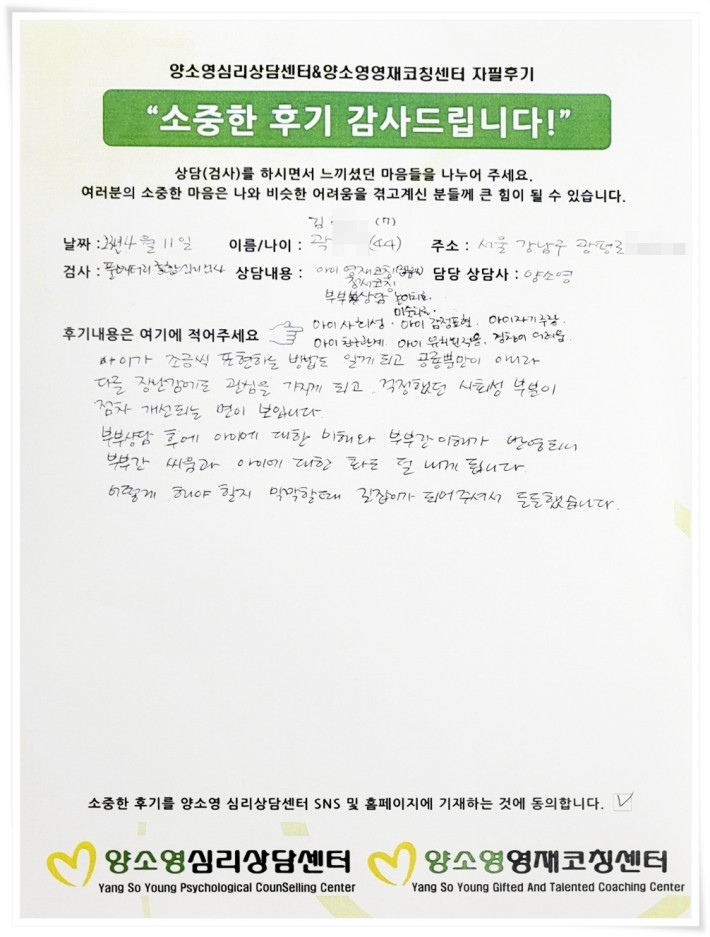 양소영심리상담센터&양소영영재코칭센터 자필후기
“소중한 후기 감사드립니다!”
상담(검사)를 하시면서 느끼셨던 마음들을 나누어 주세요.
여러분의 소중한 마음은 나와 비슷한 어려움을 겪고계신 분들께 큰 힘이 될 수 있습니다.
김 (7)
날짜 : 23년 4월 11일 이름/나이 : 곽 (44) 주소 : 서울 강남구 광평로
검사 : 풀배터리 종합심리검사 상담내용 : 아이 영재코칭 담당 상담사 : 양소영
정서코칭
부부상담 놀이치료.
미술치료.
후기내용은 여기에 적어주세요 아이 사회성. 아이 감정표현. 아이자기주장.
아이 친구관계. 아이 유치원적응. 집착이 어려움.
아이가 조금씩 표현하는 방법도 알게 되고 공룡뿐만이 아니라
다른 장난감에도 관심을 가지게 되고. 걱정했던 사회성 부분이
점차 개선되는 면이 보입니다.
부부상담 후에 아이에 대한 이해와 부부간 이해가 반영되니
부부간 싸움과 아이에 대한 화도 덜 내게 됩니다
어떻게 해야 할지 막막할때 길잡이가 되어주셔서 든든했습니다.
소중한 후기를 양소영 심리상담센터 SNS 및 홈페이지에 기재하는 것에 동의합니다.
양소영심리상담센터 양소영영재코칭센터
Yang So Young Psychological CounSelling Center Yang So Young Gifted And Talented Coaching Center